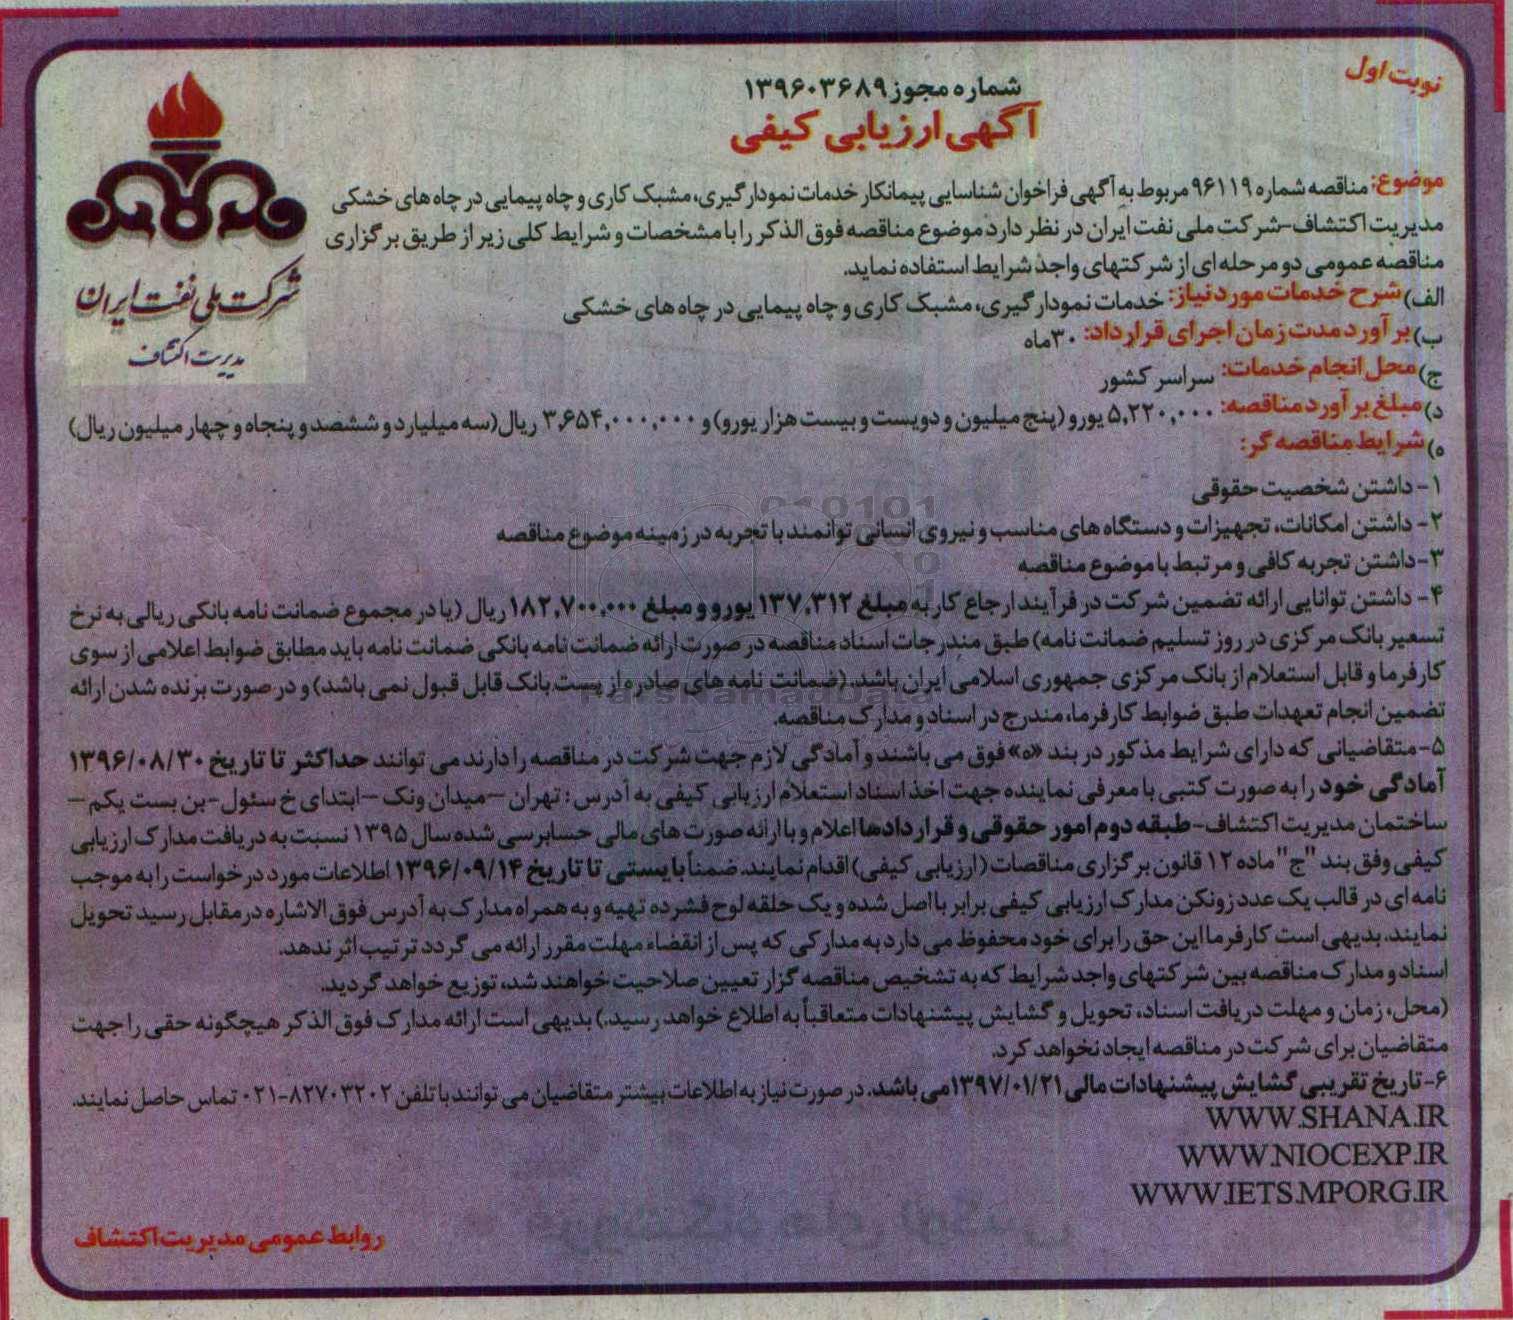 نوبت اول
شماره مجوز ۱۳۹۶۰۳۶۸۹
آگهی ارزیابی کیفی
شرکت ملی نفت ایران
مدیریت اکتشاف
موضوع: مناقصه شماره ۹۶۱۱۹ مربوط به آگهی فراخوان شناسایی پیمانکار خدمات نمودار گیری، مشبک کاری و چاه پیمایی در چاه های خشکی
مدیریت اکتشاف-شرکت ملی نفت ایران در نظر دارد موضوع مناقصه فوق الذکر را با مشخصات و شرایط کلی زیر از طریق برگزاری
مناقصه عمومی دو مرحله ای از شرکتهای واجد شرایط استفاده نماید.
الف) شرح خدمات مورد نیاز: خدمات نمودار گیری، مشبک کاری و چاه پیمایی در چاه های خشکی
ب) برآورد مدت زمان اجرای قرارداد: ۳۰ماه
ج) محل انجام خدمات: سراسر کشور
د) مبلغ برآورد مناقصه: ۵,۲۲۰,۰۰۰ یورو (پنج میلیون و دویست و بیست هزار یورو) و ۳,۶۵۴,۰۰۰,۰۰۰ ریال(سه میلیارد و ششصد و پنجاه و چهار میلیون ریال)
ه) شرایط مناقصه گر:
۱- داشتن شخصیت حقوقی
۲- داشتن امکانات، تجهیزات و دستگاه های مناسب و نیروی انسانی توانمند با تجربه در زمینه موضوع مناقصه
۳-داشتن تجربه کافی و مرتبط با موضوع مناقصه
۴- داشتن توانایی ارائه تضمین شرکت در فرآیند ارجاع کار به مبلغ ۱۳۷,۳۱۲ یورو و مبلغ ۱۸۲,۷۰۰,۰۰۰ ریال (یا در مجموع ضمانت نامه بانکی ریالی به نرخ
تسعیر بانک مرکزی در روز تسلیم ضمانت نامه) طبق مندرجات اسناد مناقصه در صورت ارائه ضمانت نامه بانکی ضمانت نامه باید مطابق ضوابط اعلامی از سوی
کارفرما و قابل استعلام از بانک مرکزی جمهوری اسلامی ایران باشد. (ضمانت نامه های صادره از پست بانک قابل قبول نمی باشد) و در صورت برنده شدن ارائه
تضمین انجام تعهدات طبق ضوابط کارفرما، مندرج در اسناد و مدارک مناقصه.
۵-متقاضیانی که دارای شرایط مذکور در بند «ه» فوق می باشند و آمادگی لازم جهت شرکت در مناقصه را دارند می توانند حداکثر تا تاریخ ۱۳۹۶/۰۸/۳۰
آمادگی خود را به صورت کتبی با معرفی نماینده جهت اخذ اسناد استعلام ارزیابی کیفی به آدرس : تهران –میدان ونک –ابتدای خ سئول-بن بست یکم –
ساختمان مدیریت اکتشاف-طبقه دوم امور حقوقی و قراردادها اعلام و با ارائه صورت های مالی حسابرسی شده سال ۱۳۹۵ نسبت به دریافت مدارک ارزیابی
کیفی وفق بند "ج" ماده ۱۲ قانون برگزاری مناقصات (ارزیابی کیفی) اقدام نمایند. ضمناً بایستی تا تاریخ ۱۳۹۶/۰۹/۱۴ اطلاعات مورد درخواست را به موجب
نامه ای در قالب یک عدد زونکن مدارک ارزیابی کیفی برابر با اصل شده و یک حلقه لوح فشرده تهیه و به همراه مدارک به آدرس فوق الاشاره در مقابل رسید تحویل
نمایند. بدیهی است کارفرما این حق را برای خود محفوظ می دارد به مدارکی که پس از انقضاء مهلت مقرر ارائه می گردد ترتیب اثر ندهد.
اسناد و مدارک مناقصه بین شرکتهای واجد شرایط که به تشخیص مناقصه گزار تعیین صلاحیت خواهند شد، توزیع خواهد گردید.
(محل، زمان و مهلت دریافت اسناد، تحویل و گشایش پیشنهادات متعاقباً به اطلاع خواهد رسید.) بدیهی است ارائه مدارک فوق الذکر هیچگونه حقی را جهت
متقاضیان برای شرکت در مناقصه ایجاد نخواهد کرد.
۶-تاریخ تقریبی گشایش پیشنهادات مالی ۱۳۹۷/۰۱/۲۱ می باشد. در صورت نیاز به اطلاعات بیشتر متقاضیان می توانند با تلفن ۸۲۷۰۳۲۰۲-۰۲۱ تماس حاصل نمایند.
WWW.SHANA.IR
WWW.NIOCEXP.IR
WWW.IETS.MPORG.IR
روابط عمومی مدیریت اکتشاف